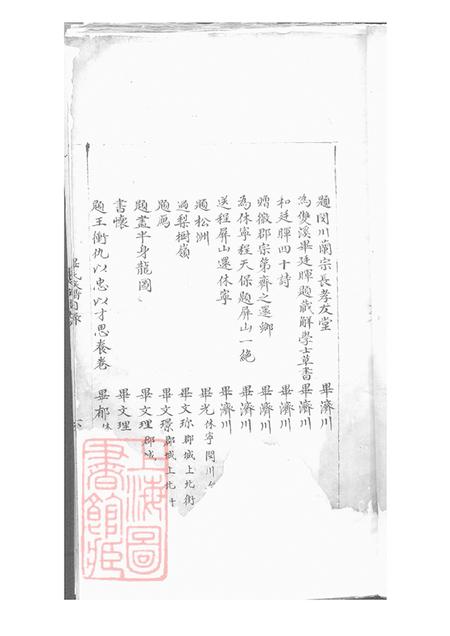 題閔川蘭宗長孝友堂 畢濟川
為雙溪畢廷暉題戴解學士草書 畢濟川
和廷暉四十詩 畢濟川
贈徽郡宗弟齊之還鄉 畢濟川
為休寧程天保題屏山一絕 畢濟川
送程屏山還休寧 畢濟川
題松洲 畢光 休寧閔川
過梨樹嶺 畢文珎 郡城上北街
題鴈 畢文璟 郡城上北
題畫半身龍圖 畢文理 郡城
書懷 畢文理
題王衡仇以忠以才思養卷 畢郁 休
上海圖
書館藏